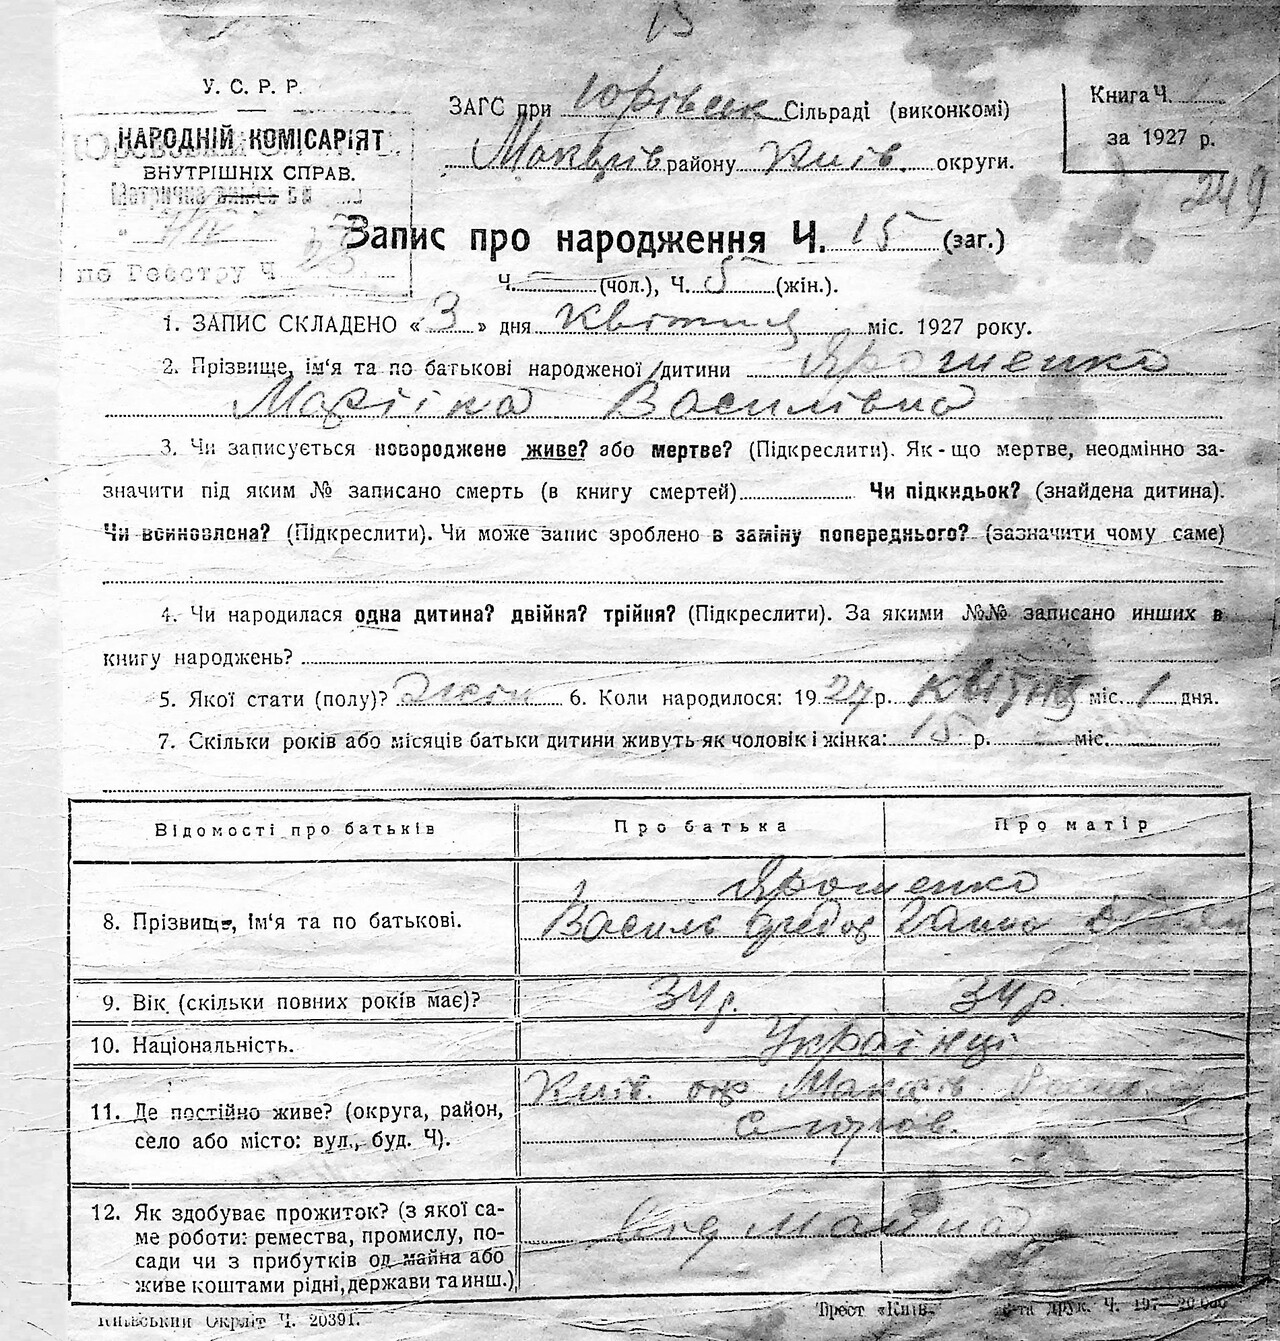 15
У. С. Р. Р.
НАРОДНІЙ КОМІСАРІЯТ
ВНУТРІШНІХ СПРАВ.
Метрична
по Реєстру Ч.
ЗАГС при Юрівськ Сільраді (виконкомі)
Макарів району Київ. округи.
Книга Ч.
за 1927 р.
249
Запис про народження Ч. 15 (заг.)
Ч. — (чол.), Ч. 5 (жін.).
1. ЗАПИС СКЛАДЕНО «3» дня квітня міс. 1927 року.
2. Прізвище, ім‘я та по батькові народженої дитини Ярошенко
Марійка Василівна
3. Чи записується новороджене живе? або мертве? (Підкреслити). Як-що мертве, неодмінно за-
значити під яким № записано смерть (в книгу смертей) Чи підкидьок? (знайдена дитина).
Чи воиновлена? (Підкреслити). Чи може запис зроблено в заміну попереднього? (зазначити чому саме)
4. Чи народилася одна дитина? двійня? трійня? (Підкреслити). За якими №№ записано инших в
книгу народжень?
5. Якої стати (полу)? Жін 6. Коли народилося: 1927 р. квітня міс. 1 дня.
7. Скільки років або місяців батьки дитини живуть як чоловік і жінка: 15 р. міс.
Відомості про батьків Про батька Про матір
Ярошенко
8. Прізвище, ім‘я та по батькові. Василь Федор Ганна
9. Вік (скільки повних років має)? 34 р. 34 р.
10. Національність. Українці
11. Де постійно живе? (округа, район,
село або місто: вул., буд. Ч). Київ. окр Макарів
с Юрів.
12. Як здобуває прожиток? (з якої са-
ме роботи: ремества, промислу, по-
сади чи з прибутків од майна або
живе коштами рідні, держави та инш.)
Від майна
Київський Окрліт Ч. 20391.
Трест «Київ-Друк» Ч. 197—20000